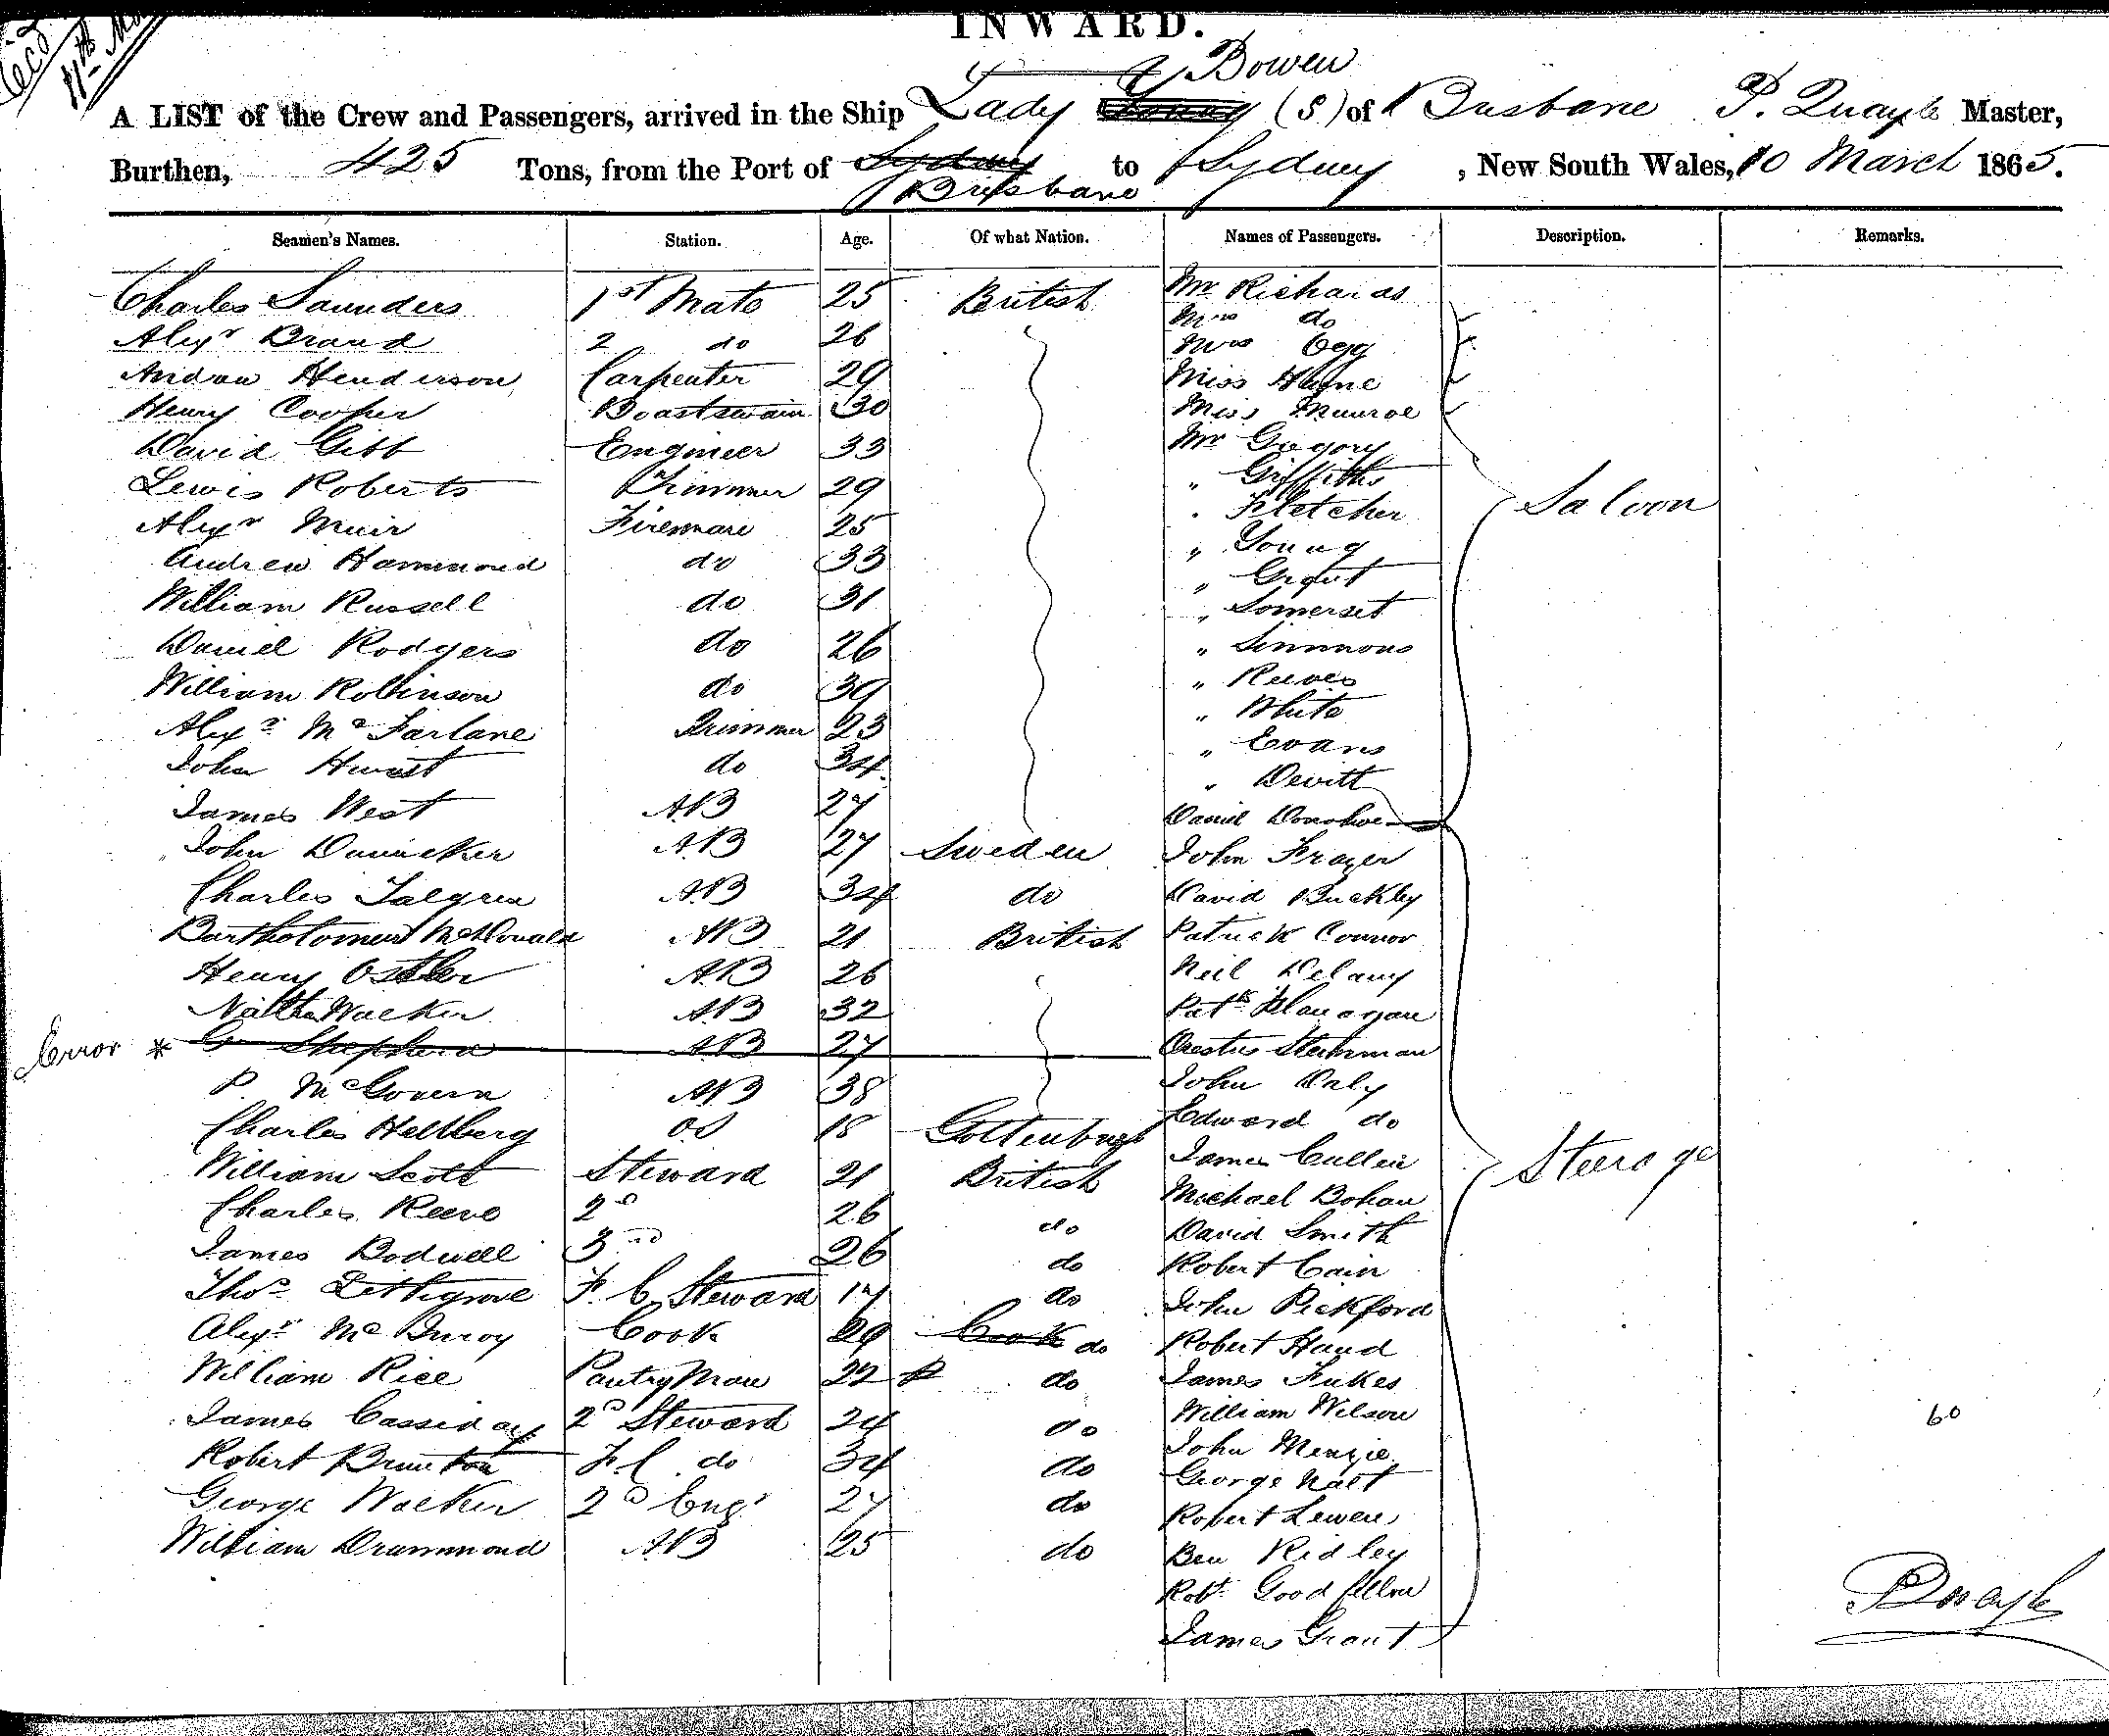 INWARD.
Bowen
A LIST of the Crew and Passengers, arrived in the Ship Lady Young (S) of Brisbane P. Quayle Master,
Burthen, 425 Tons, from the Port of Sydney to Sydney, New South Wales, 10 March 1865.
Brisbane
Seamen's Names. Station. Age. Of what Nation. Names of Passengers. Description. Remarks.
Charles Saunders 1st Mate 25 British Mr Richards
Alexr Brand 2 do 26 Mrs do
Andrew Henderson Carpenter 29 Mrs Ogg
Henry Cooper Boastswain 30 Miss Hayne
David Gibb Engineer 33 Miss Munroe
Lewis Roberts Trimmer 29 Mr Gregory
Alexr Muir Fireman 25 " Griffiths
Andrew Hammond do 33 " Fletcher Saloon
William Russell do 31 " Young
Daniel Rodgers do 26 " Grant
William Robinson do 39 " Somerset
Alexr Mc Farlane Trimmer 23 " Simmons
John do 34 " Reeves
James West AB 27 " White
John AB 27 Sweden " Evans
Charles Talgren AB 34 do " Devitt
Bartholomew McDonald AB 21 British Daniel Donohue
Henry Ostler AB 26 John Frazer
Walker AB 32 David Buckley
Error * G Shepherd AB 27 Patrick Connor
P. McGovern AB 38 Neil Delany
Charles Hellberg OS 18 Gottenburgh Patk Flanagan
William Scott Steward 21 British Orestus Steinman
Charles Reeve 2d 26 do John Daly
James Bodwell 3rd 26 do Edward do
Thos Lethgrove F. C. Steward 17 do James Cullen Steerage
Alexr Mc Inroy Cook 29 Cook do Michael Bohan
William Rice Pantry Man 22 do David Smith
James Cassiday 2d Steward 24 do Robert Cain
Robert Brunton F.C. do 34 do John Pickford
George Walker 2d Engr 27 do Robert Hand
William Drummond AB 25 do James Fukes
William Wilson 60
John Menzie
George Nalt
Robert Lewen
Ben Ridley
Robt Goodfellow
James Grant
P Quayle